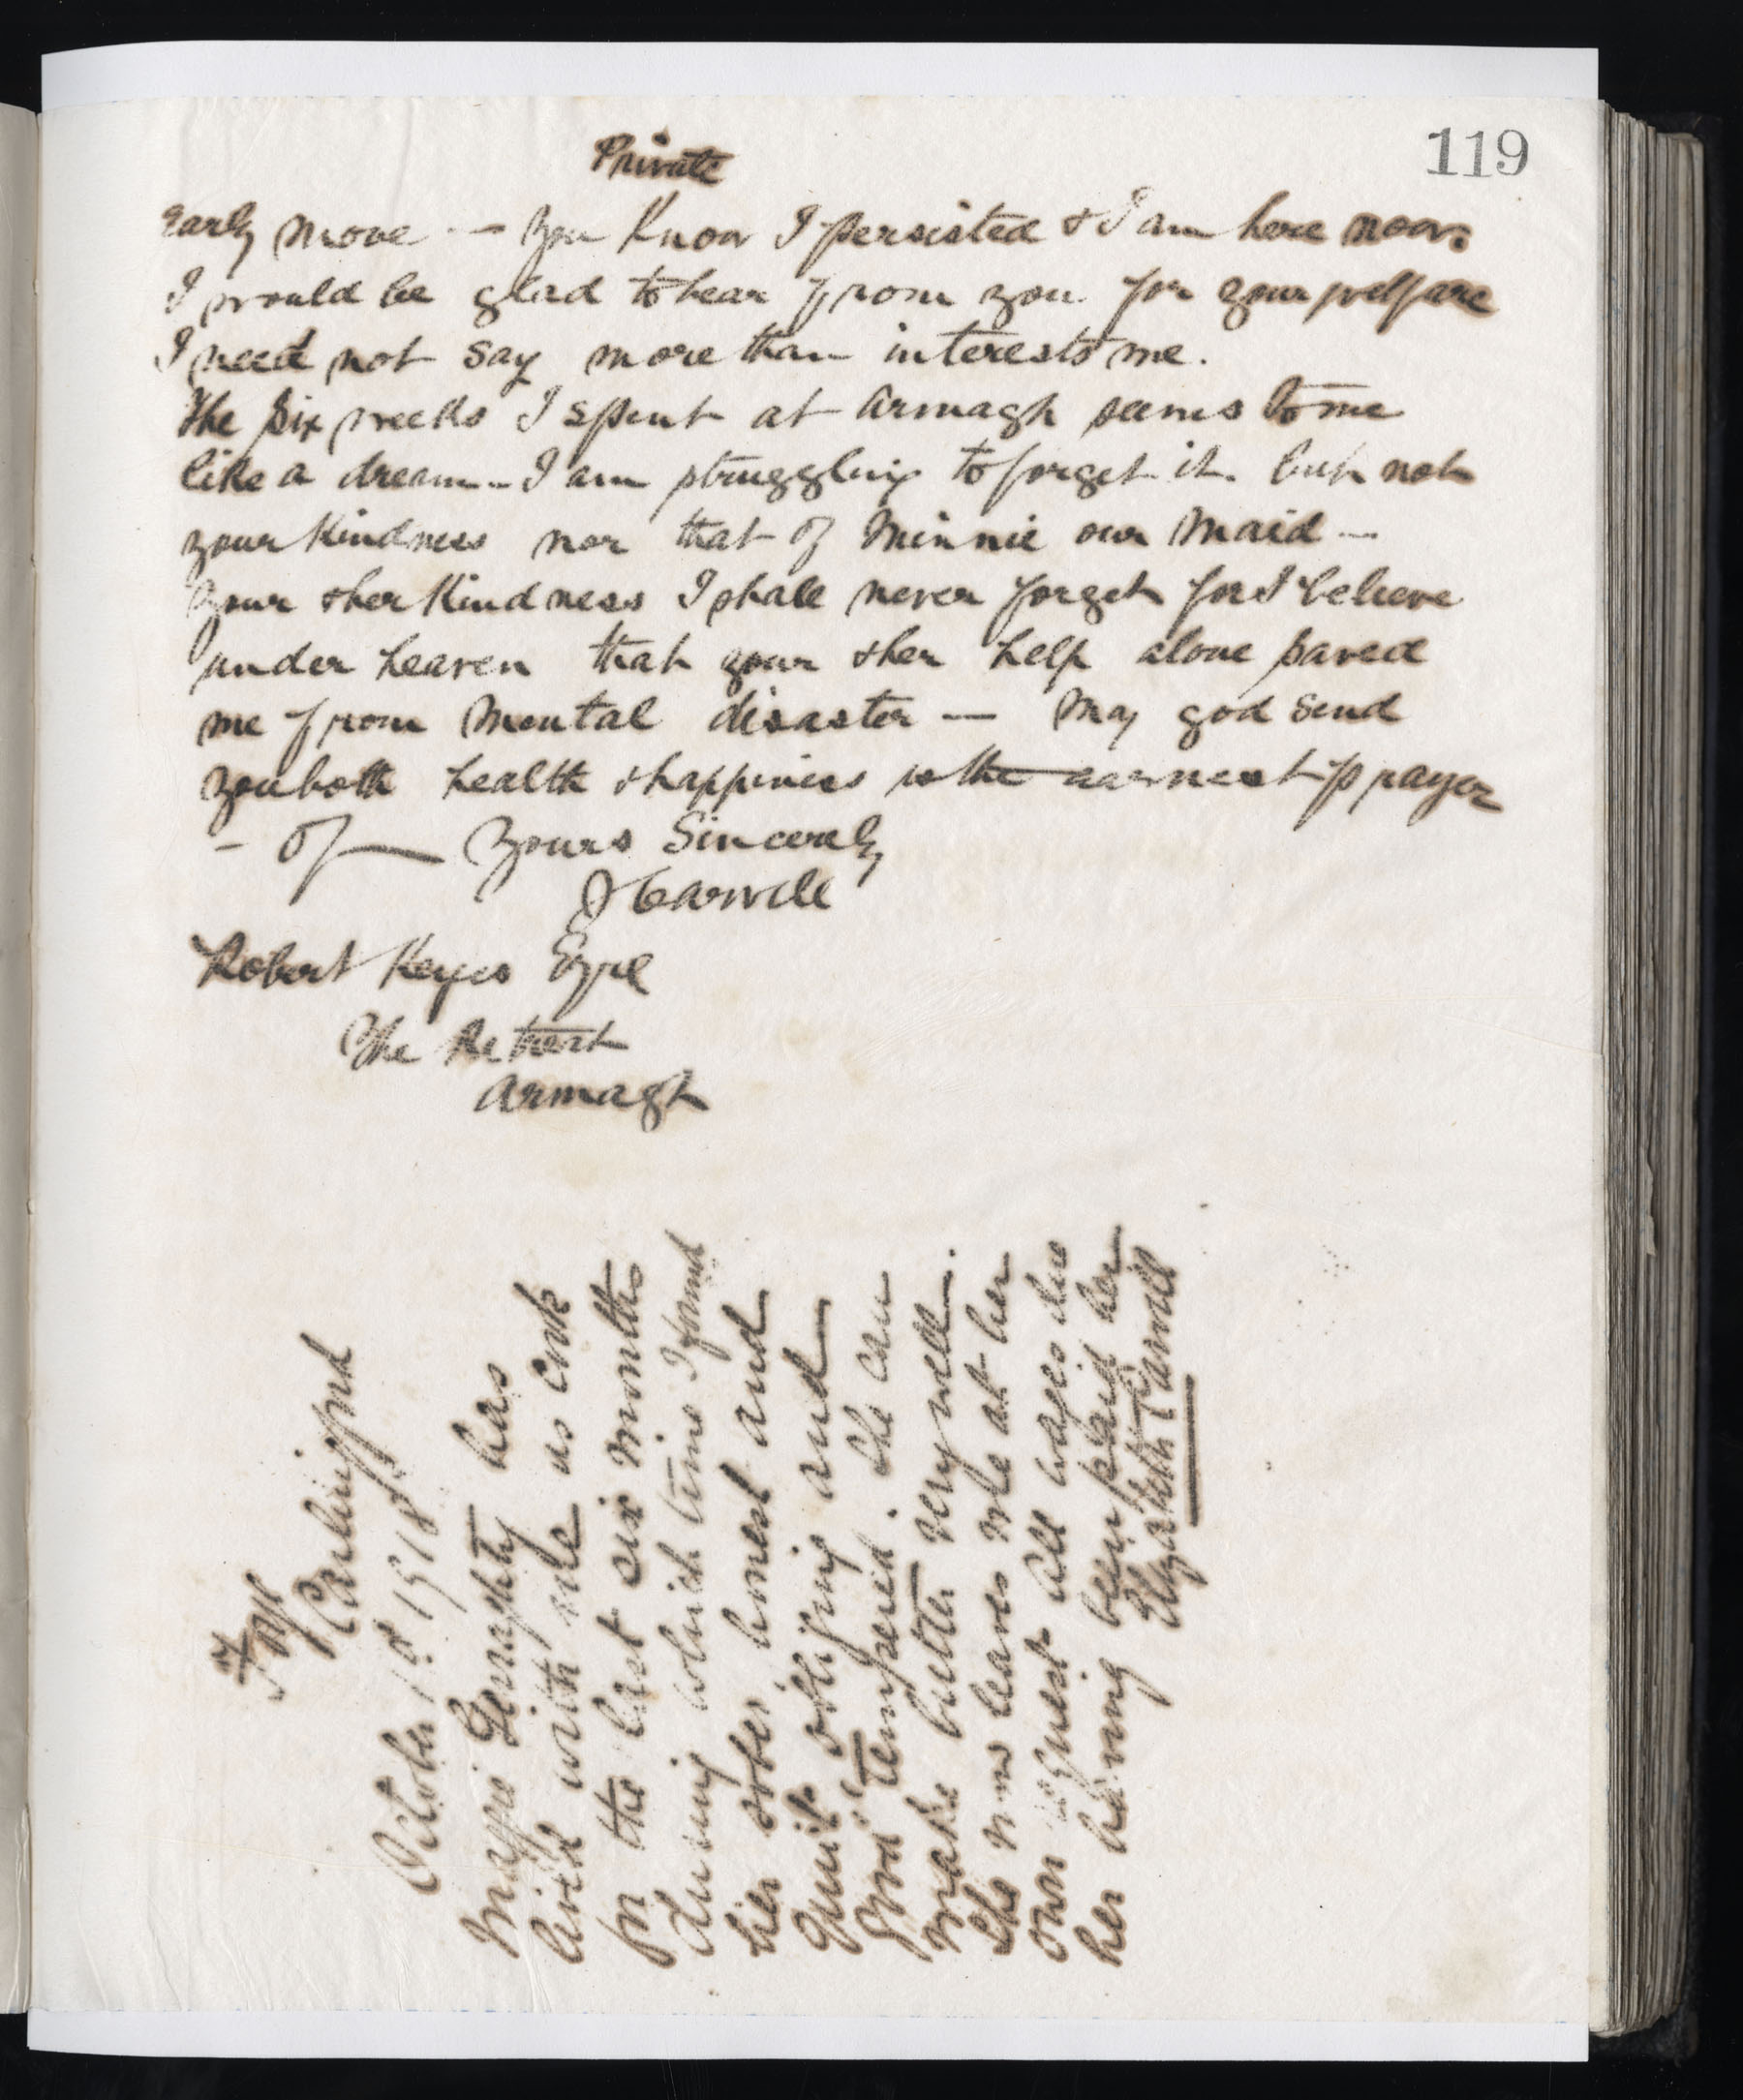 119
Private
early move — you know I persisted & I am here now.
I would be glad to hear from you for your welfare
I need not say more than interests me.
The six weeks I spent at Armagh seems to me
like a dream — I am struggling to forget it. but not
your kindness nor that of Minnie our maid —
Your & her kindness I shall never forget for I believe
under heaven that your & her help alone saved
me from mental disaster — May god send
you both health & happiness is the earnest prayer
- of — Yours Sincerely
J Carvill
Robert Keyes Esqre
The Retreat
Armagh
Carlingford
October 18 1918
Maggie Geraghty has
lived with me as cook
for the last six months
during which time I found
her sober honest and
quite obliging and
good tempered. She can
make butter very well.
She now leaves me at her
own request all wages due
her having been paid her
Elizabeth Carvill